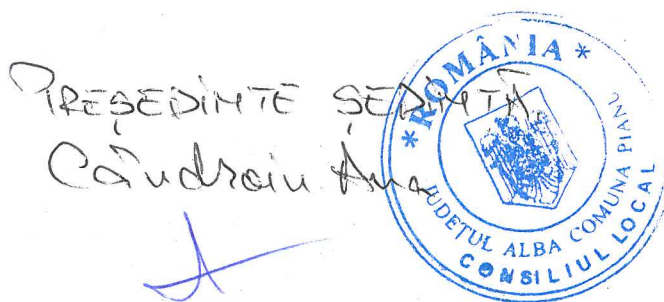 PREȘEDINTE ȘEDINȚĂ,
Cândroiu Ana
* ROMÂNIA *
JUDEȚUL ALBA COMUNA PIANU
CONSILIUL LOCAL